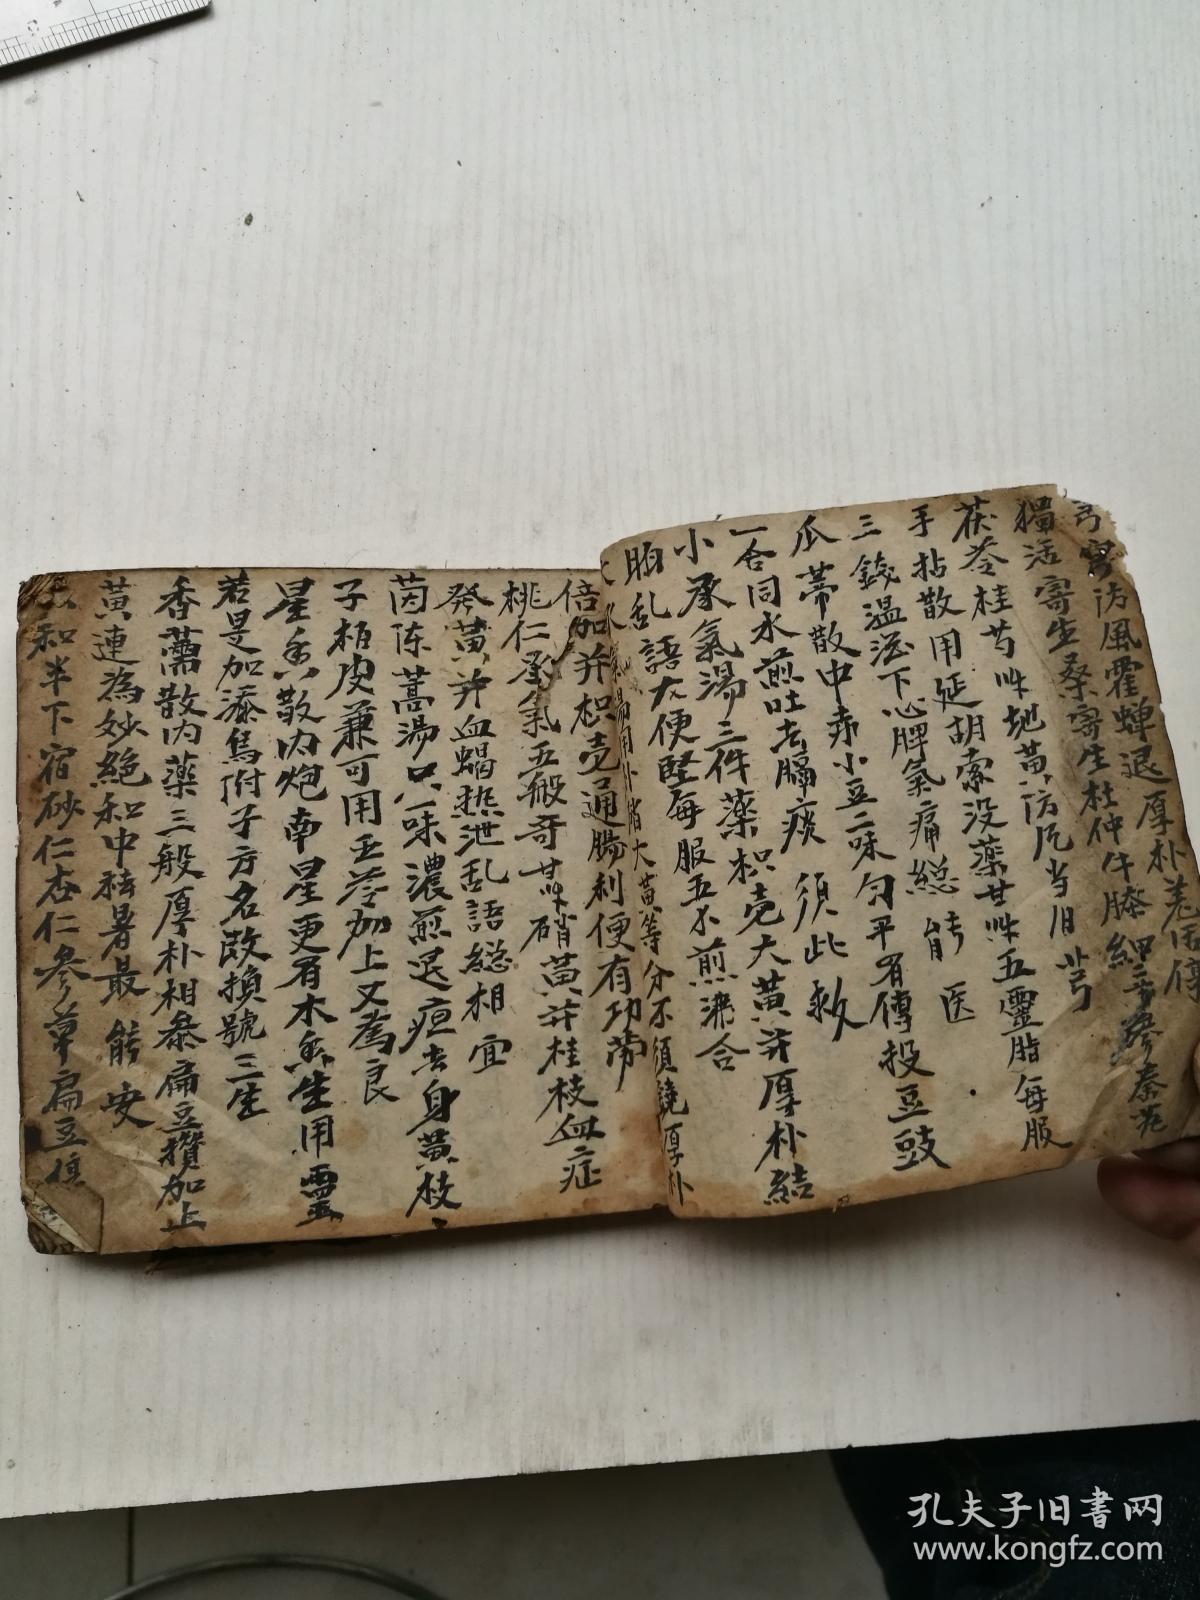 芎窮防風霍蟬退厚朴羌
獨活寄生桑寄生杜仲牛膝細辛參秦艽
茯苓桂芍艸地黃防風当归芎
手拈散用延胡索没藥甘艸五靈脂每服
三錢温滋下心脾氣痛総能医
瓜蒂散中赤小豆二味匀平有傳投豆豉
一合同水煎吐去膈痰須此救
小承氣湯三件藥枳壳大黄并厚朴結
胸乱語大便堅每服五不煎沸合
大承氣湯用朴硝大黃等分不須饒厚朴
倍加并枳壳通腸利便有功勞
桃仁承氣五般奇甘艸硝黄并桂枝血症
發黄并血蝎热泄乱語総相宜
茵陈蒿湯只一味濃煎退疸去身黄枝
子栢皮兼可用玉苓加上又為良
星香散内炮南星更有木香生用靈
若是加添烏附子方名改換號三生
香薷散内藥三般厚朴相叅扁豆攢加上
黃連為妙絶和中祛暑最能安
和半下宿砂仁杏仁參草扁豆
孔夫子旧书网
www.kongfz.com